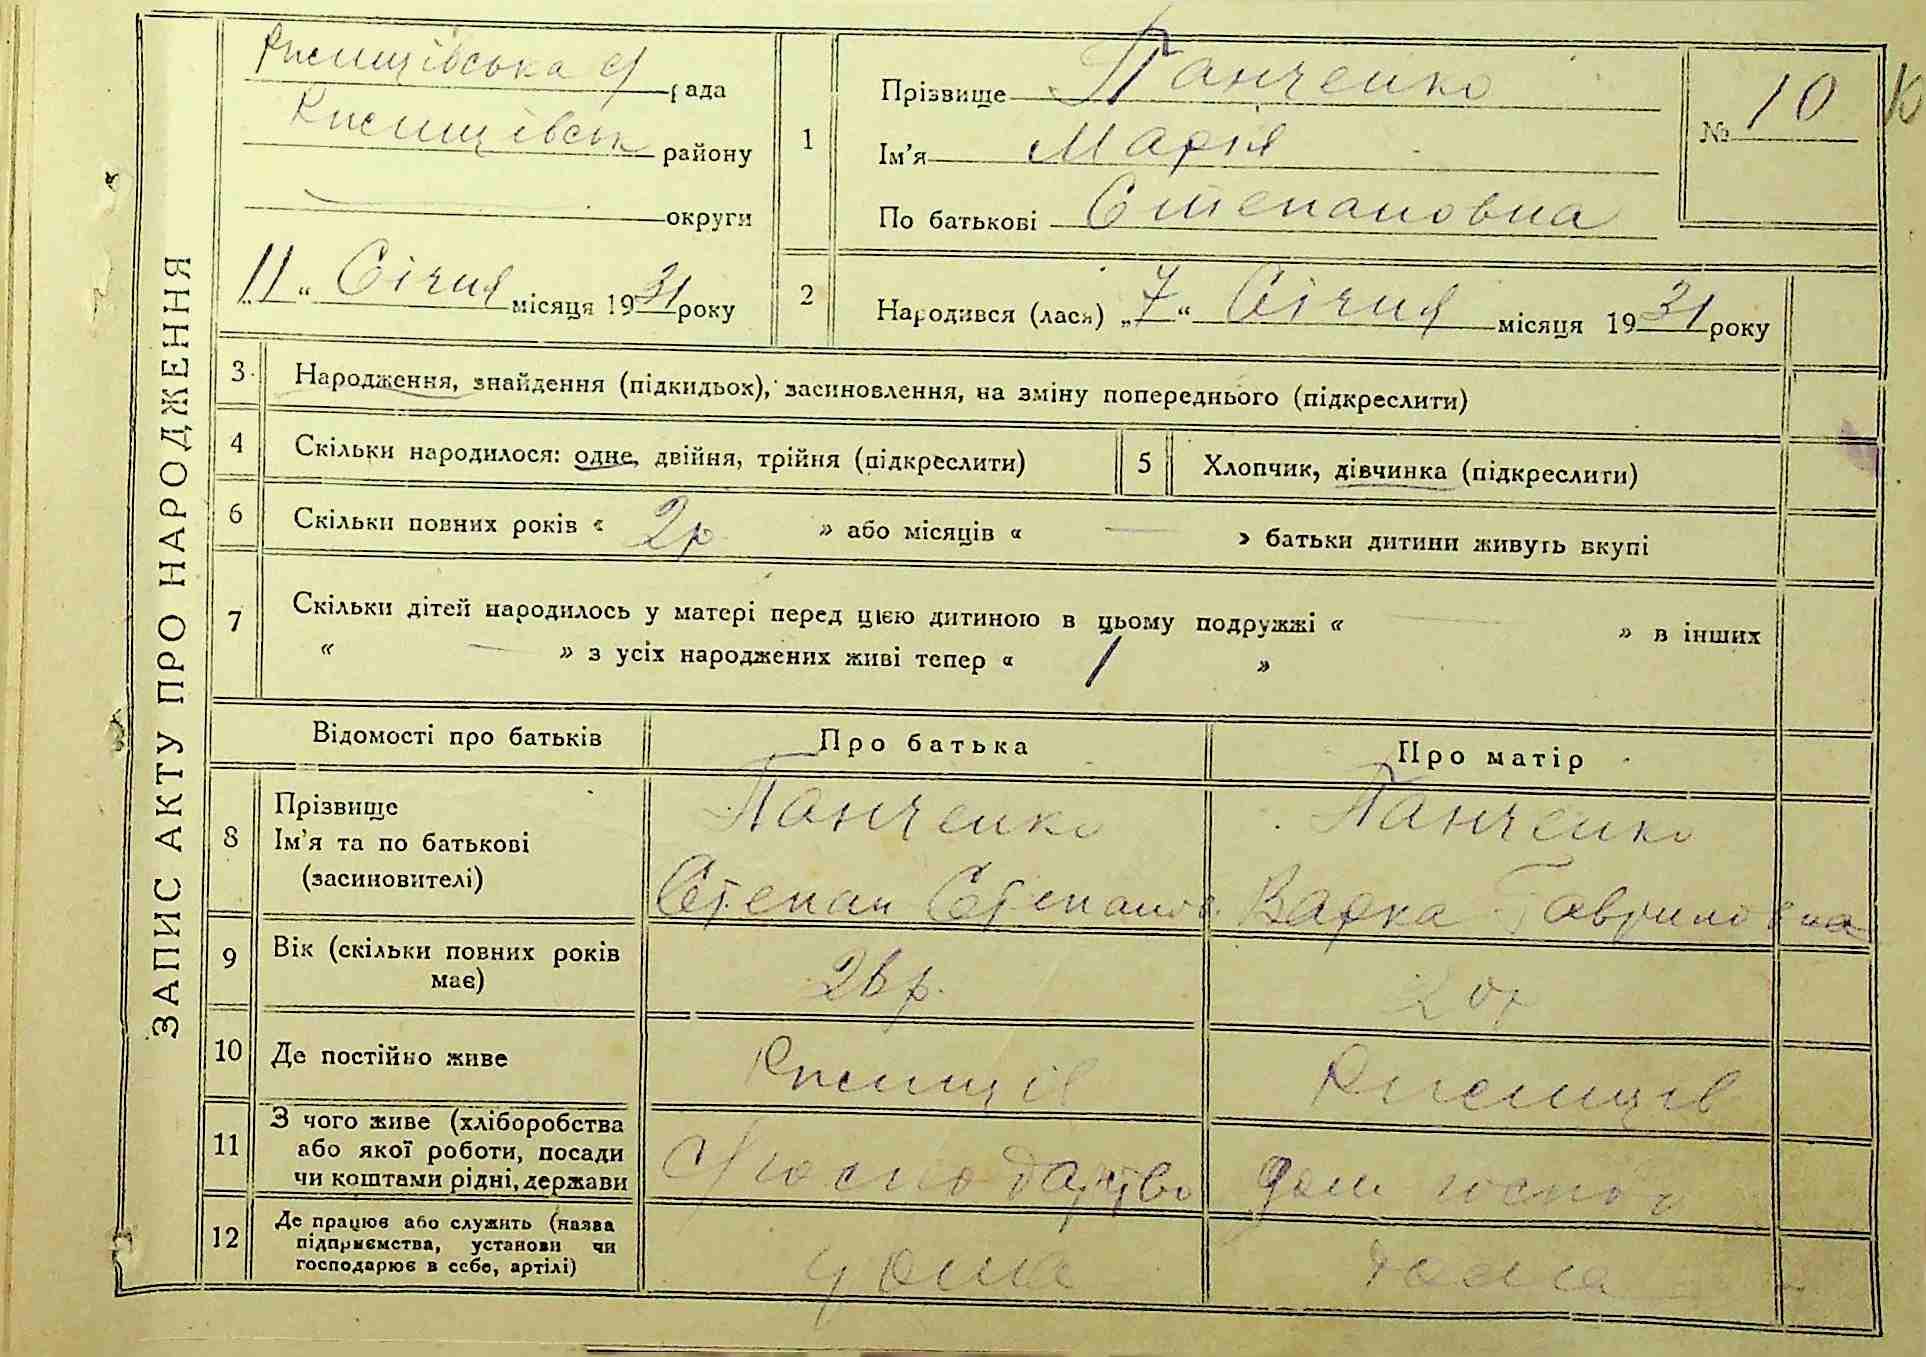 ЗАПИС АКТУ ПРО НАРОДЖЕННЯ
Ржищівська с/рада
Ржищівськ району
округи
„11“ Січня місяця 1931 року
1
Прізвище Панченко
Ім'я Марія
По батькові Степановна
№ 10
2
Народився (лася) „7“ Січня місяця 1931 року
3 Народження, знайдення (підкидьох), засиновлення, на зміну попереднього (підкреслити)
4 Скільки народилося: одне, двійня, трійня (підкреслити)
5 Хлопчик, дівчинка (підкреслити)
6 Скільки повних років « 2р. » або місяців « — » батьки дитини живуть вкупі
7 Скільки дітей народилось у матері перед цією дитиною в цьому подружжі « — » в інших
« — » з усіх народжених живі тепер « 1 »
Відомості про батьків Про батька Про матір
8 Прізвище
Ім'я та по батькові
(засиновителі)
Панченко
Степан Степанов.
Панченко
Варка Гавриловна
9 Вік (скільки повних років
має)
26р.
20р
10 Де постійно живе Ржищів Ржищів
11 З чого живе (хліборобства
або якої роботи, посади
чи коштами рідні, держави
С/господарство
дом. госпо
12 Де працює або служить (назва
підприємства, установи чи
господарює в себе, артілі)
удома